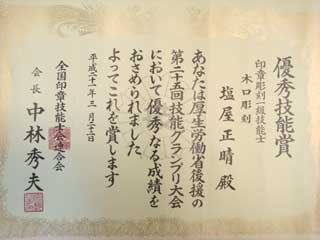 優秀技能賞
印章彫刻一級技能士
木口彫刻
塩屋正晴 殿
あなたは厚生労働省後援の
第二十五回技能グランプリ大会
において優秀なる成績を
おさめられました
よってこれを賞します
平成二十一年三月二十二日
全国印章技能士会連合会
会長 中林秀夫